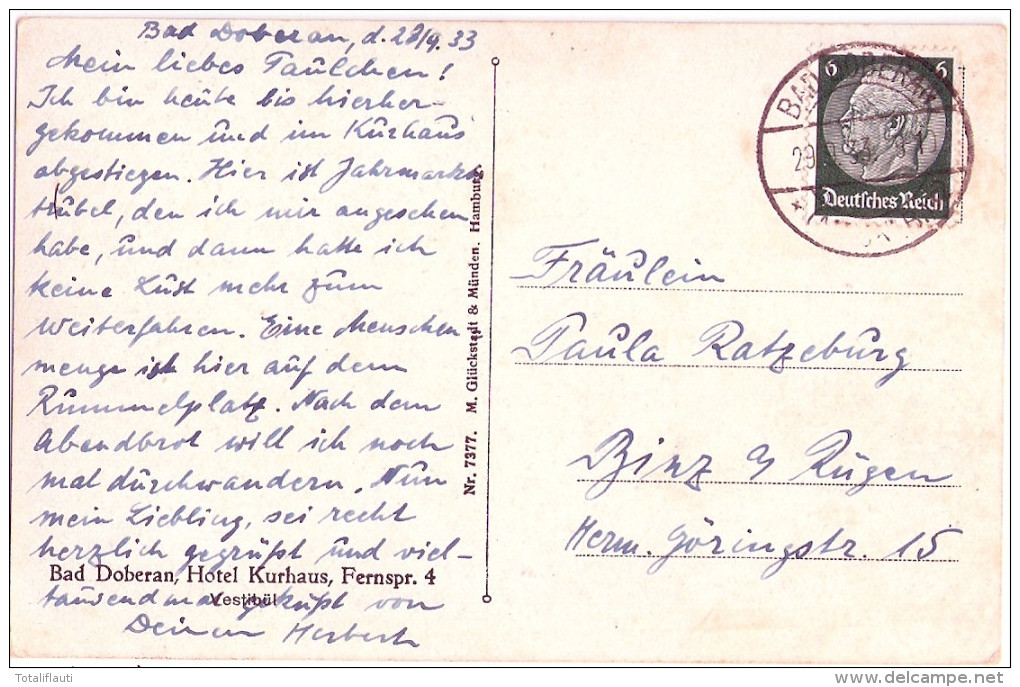 Bad Doberan, d. 28/9. 33
Mein liebes Paulchen!
Ich bin heute bis hierher-
gekommen und im Kurhaus
abgestiegen. Hier ist Jahrmarkts
trubel, den ich mir angesehen
habe, und dann hatte ich
keine Lust mehr zum
Weiterfahren. Eine Menschen
menge ist hier auf dem
Rummelplatz. Nach dem
Abendbrot will ich noch
mal durchwandern. Nun
mein Liebling, sei recht
herzlich gegrüßt und viel-
tausendmal geküßt von
Deinem Herbert
Bad Doberan, Hotel Kurhaus, Fernspr. 4
Vestibül
Nr. 7377. M. Glückstadt & Münden, Hamburg.
6 6
Deutsches Reich
BAD DOBERAN
29
Fräulein
Paula Ratzeburg
Binz a/ Rügen
Herm. Göringstr. 15
Totaliflauti
www.delcampe.net